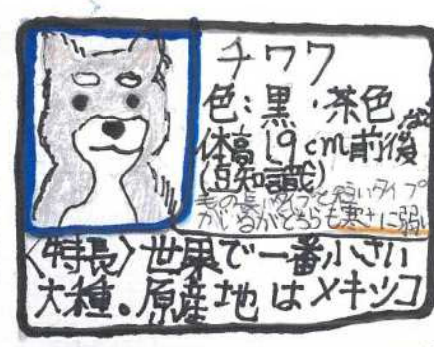 チワワ
色:黒・茶色など
体高19cm前後
(豆知識)
毛の長いタイプと短いタイプ
がいるがどちらも寒さに弱い
〈特長〉世界で一番小さい
犬種。原産地はメキシコ